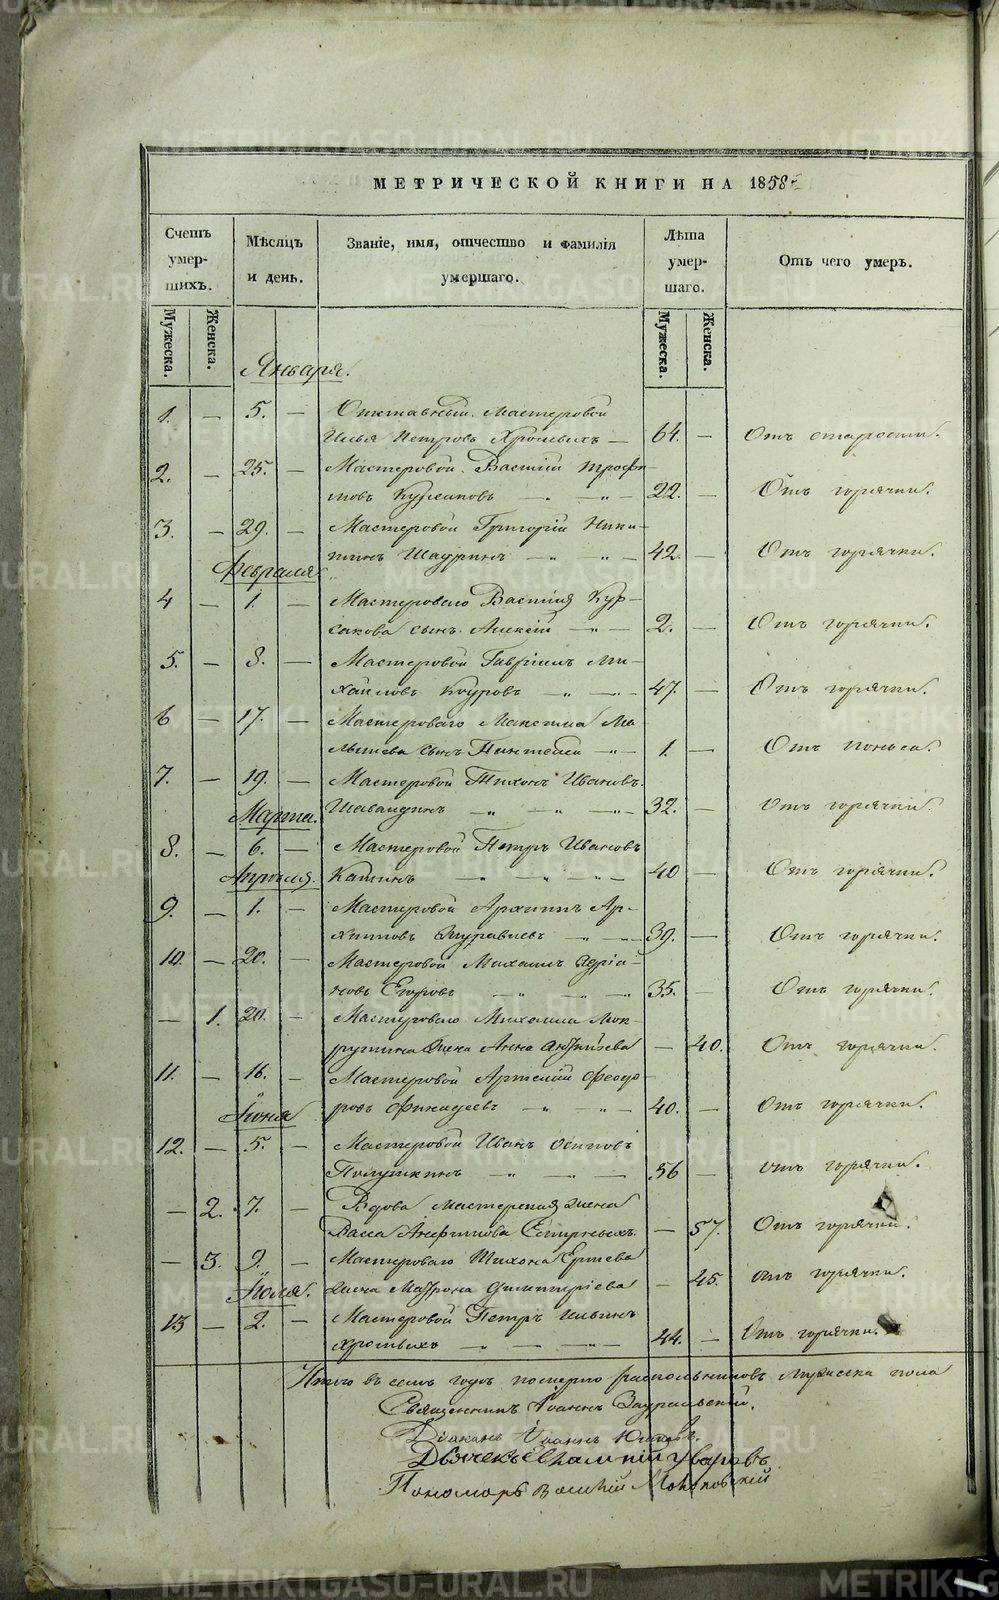 МЕТРИЧЕСКОЙ КНИГИ НА 1858
Счетъ умер-шихъ.
Мѣсяцъ и день.
Званіе, имя, отчество и фамилія умершаго.
Лѣта умер-шаго.
Отъ чего умеръ.
Мужеска.
Женска.
Мужеска.
Женска.
Января.
1. — 5. — Отставный Мастеровой
Илья Петровъ Хромыхъ — 64. — Отъ старости.
2. — 25. — Мастеровой Василій Трофи-
мовъ — 22. — Отъ горячки.
3. — 29. — Мастеровой Григорій Ники-
тинъ Шадринъ — 42. — Отъ горячки.
Февраля
4 — 1. — Мастероваго Василія Кур-
сакова сынъ Алексій — 2. — Отъ горячки.
5. — 8. — Мастеровой Гавріилъ Ми-
хайловъ — 47. — Отъ горячки.
6 — 17. — Мастероваго Максима Ма-
лышева сынъ Пантелей — 1. — Отъ поноса.
7. — 19. — Мастеровой Тихонъ Ивановъ
32. — отъ горячки.
Марта.
8. — 6. — Мастеровой Петръ Ивановъ
40 — Отъ горячки.
Апрѣля.
9. — 1. — Мастеровой Архипъ Ар-
хиповъ Журавлевъ — 39. — Отъ горячки.
10. — 20. — Мастеровой Михаилъ Адріа-
новъ Егоровъ 35. — Отъ горячки.
— 1. 20. — Мастероваго Михаила Мок-
рушина жена Анна — 40. Отъ горячки.
11. — 16. — Мастеровой Артемій Феодо-
ровъ — 40. — Отъ горячки.
Іюня
12. — 5. — Мастеровой Иванъ Осиповъ
Полушкинъ 56 — отъ горячки.
— 2. 7. — Вдова мастерская жена
Васса — 57. Отъ горячки.
— 3. 9. — Мастероваго Тихона Ершева
жена Матрона Димитріева — 45. отъ горячки.
Іюля.
13 — 2. — Мастеровой Петръ Ильинъ
Хромыхъ — 44. — Отъ горячки.
Итого въ семъ годѣ померло раскольниковъ мужеска пола
Священникъ Іоаннъ Зауральскій.
Діаконъ Іоаннъ
Дьячекъ Уваровъ
Пономарь Василій